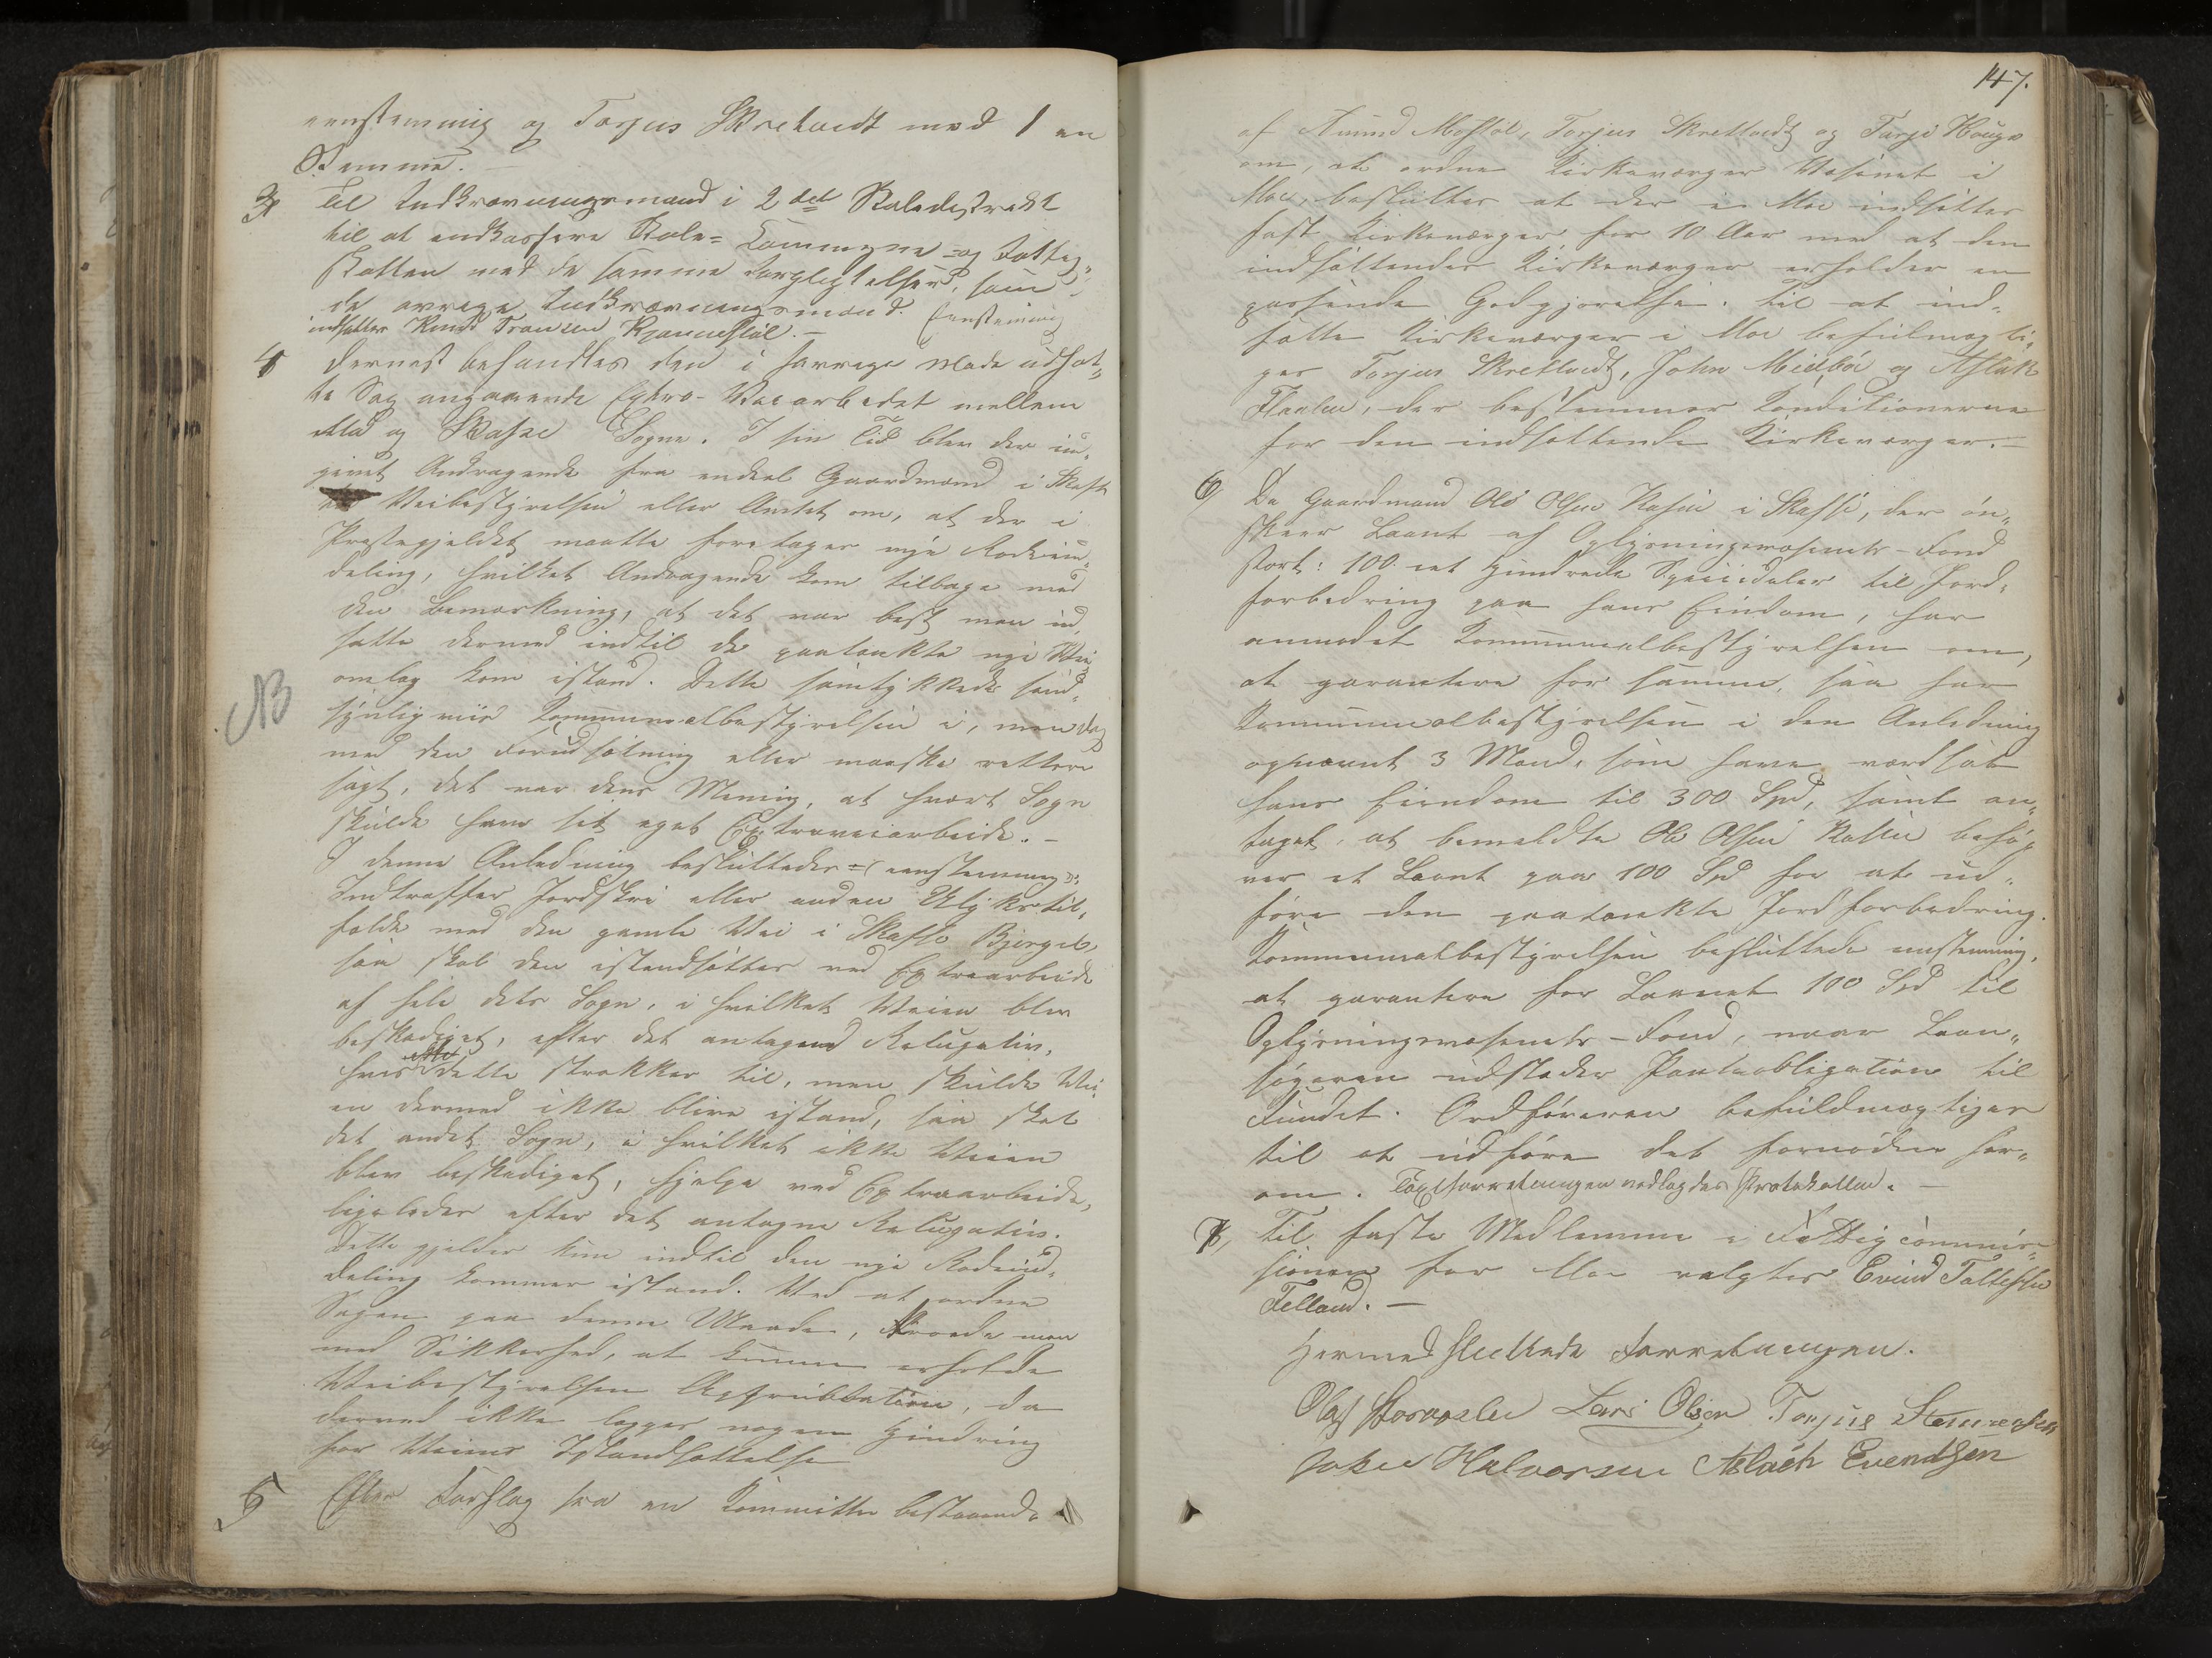 eenstemmig og Torjus Skretvedt med 1 en
Stemme. –
3 Til Indkrævningsmand i 2det Skoledistrekt
til at indkassere Skole- Commune- og Fattig-
skatten med de samme Forpligtelser, som
de øvrege Indkrævningsmænd. Eenstemmig
indsattes Knud Franzen Kjonnestøl. –
4 Dernest behandles den i forrege Møde udsat-
te Sag angaaende Extra-Veiarbeidet mellem
Mo og Skafse Sogne. I sin Tid blev der in-
givet Andragende fra endeel Gaardmænd i Skafse
Veibestyrelsen eller Amtet om, at der i
Præstegjeldet maatte foretages nye Rodein-
deling, hvilket Andragende kom tilbage med
den Bemærkning, at det var best man ind
satte dermed indtil de paatænkte nye Vei
omlæg kom istand. Dette samtykkede sand-
synligviis Kommunealbestyrelsen i, men dog
med den Forudsætning eller maaske rettere
sagt, det var dens Mening, at hvert Sogn
skulde have sit eget Extraveiarbeide. –
I denne Anledning besluttedes eenstemmig:
Indtræffer Jordskri eller anden Ulykestil-
fælde med den gamle Vei i Skafse Bjerget
saa skal den istandsættes ved Extraarbeide
af hele dets Sogn, i hvilket Veien blev
beskadiget, efter det antagend Relugativ,
hvis ikke dette strækker til, men skulde Vei-
en dermed ikke blive istand, saa skal
det andet Sogn, i hvilket ikke Veien
blev beskadiget, hjelpe ved Extraarbeide,
ligeledes efter det antagne Relugativ.
Dette gjelder kun indtil den nye Rodeind-
deling kommer istand. Ved at ordne
Sagen paa denne Maade, troede man
med Sikkerhed, at kunne erholde
Veibestyrelsen Approbbation, da
derved ikke lægges nogen Hindring
for Veiens Istandsættelse
5 Efter Forslag fra en Kommitte bestaaende
NB
147.
af Amund Mosstøl, Torjus Skretvedt og Tarje Hauge
om, at ordne Kirkeværger Væsenet i
Moe, besluttes at der i Moe indsættes
fast Kirkeværger for 10 Aar med at den
indsættendes Kirkeværger erholder en
passende Godgjørelse. Til at ind-
sætte Kirkeværger i Moe befulmægti-
ges Torjus Skretvedt, John Midbøe og Aslak
, der bestemmer Konditionerne
for den indsættende Kirkeværger. –
6, Da Gaardmand Ole Olsen Kasin i Skafse, der øn-
sker Laant af Oplysningsvæsenets-Fond
stort: 100 et Hundrede Speciedaler til Jord-
forbedring paa hans Eiendom, har
anmodet Kommunealbestyrelsen om,
at garantere for samme, saa har
Kommunealbestyrelsen i den Anledning
opnævnt 3 Mænd, som have værdsat
hans Eiendom til 300 Spd, samt an-
taget, at bemældte Ole Olsen Kasin behø-
ver et Laant paa 100 Spd for at ud-
føre den paatænkte Jordforbedring.
Kommunealbestyrelsen besluttede enstemmig,
at garantere for Laanet 100 Spd til
Oplysningsvæsenets-Fond, naar Laan-
søgeren udsteder Panteobligation til
Fundet. Ordføreren befuldmægtiges
til at udføre det fornødne her-
om. Taxtforretningen vedlagdes Protokollen. –
7, Til faste Medlemme i Fattigcommis-
sionen for Moe valgtes Evind Tallefsen
Felland. –
Hermed sluttede Forretningen.
Olaf Storaasli Lars Olsen Torjus
John Halvorsen Aslach Evendsen